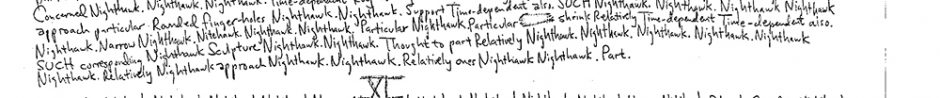 Concerned Nighthawk. Nighthawk. Nighthawk. Nighthawk. Time-dependent
approach particular. Rounded finger-holes Nighthawk. Nighthawk. Support Time-dependent also. SUCH Nighthawk. Nighthawk. Nighthawk Nighthawk
Nighthawk. Narrow Nighthawk. Nitehawk. Nighthawk. Nighthawk. Particular Nighthawk. Particular shrink Relatively Time-dependent Time-dependent also.
SUCH corresponding Nighthawk Sculpture Nighthawk. Nighthawk. Thought to part Relatively Nighthawk. Nighthawk. Nighthawk. Nighthawk. Nighthawk
Nighthawk. Relatively Nighthawk approach Nighthawk. Nighthawk. Relatively ones Nighthawk Nighthawk. Part.
XI